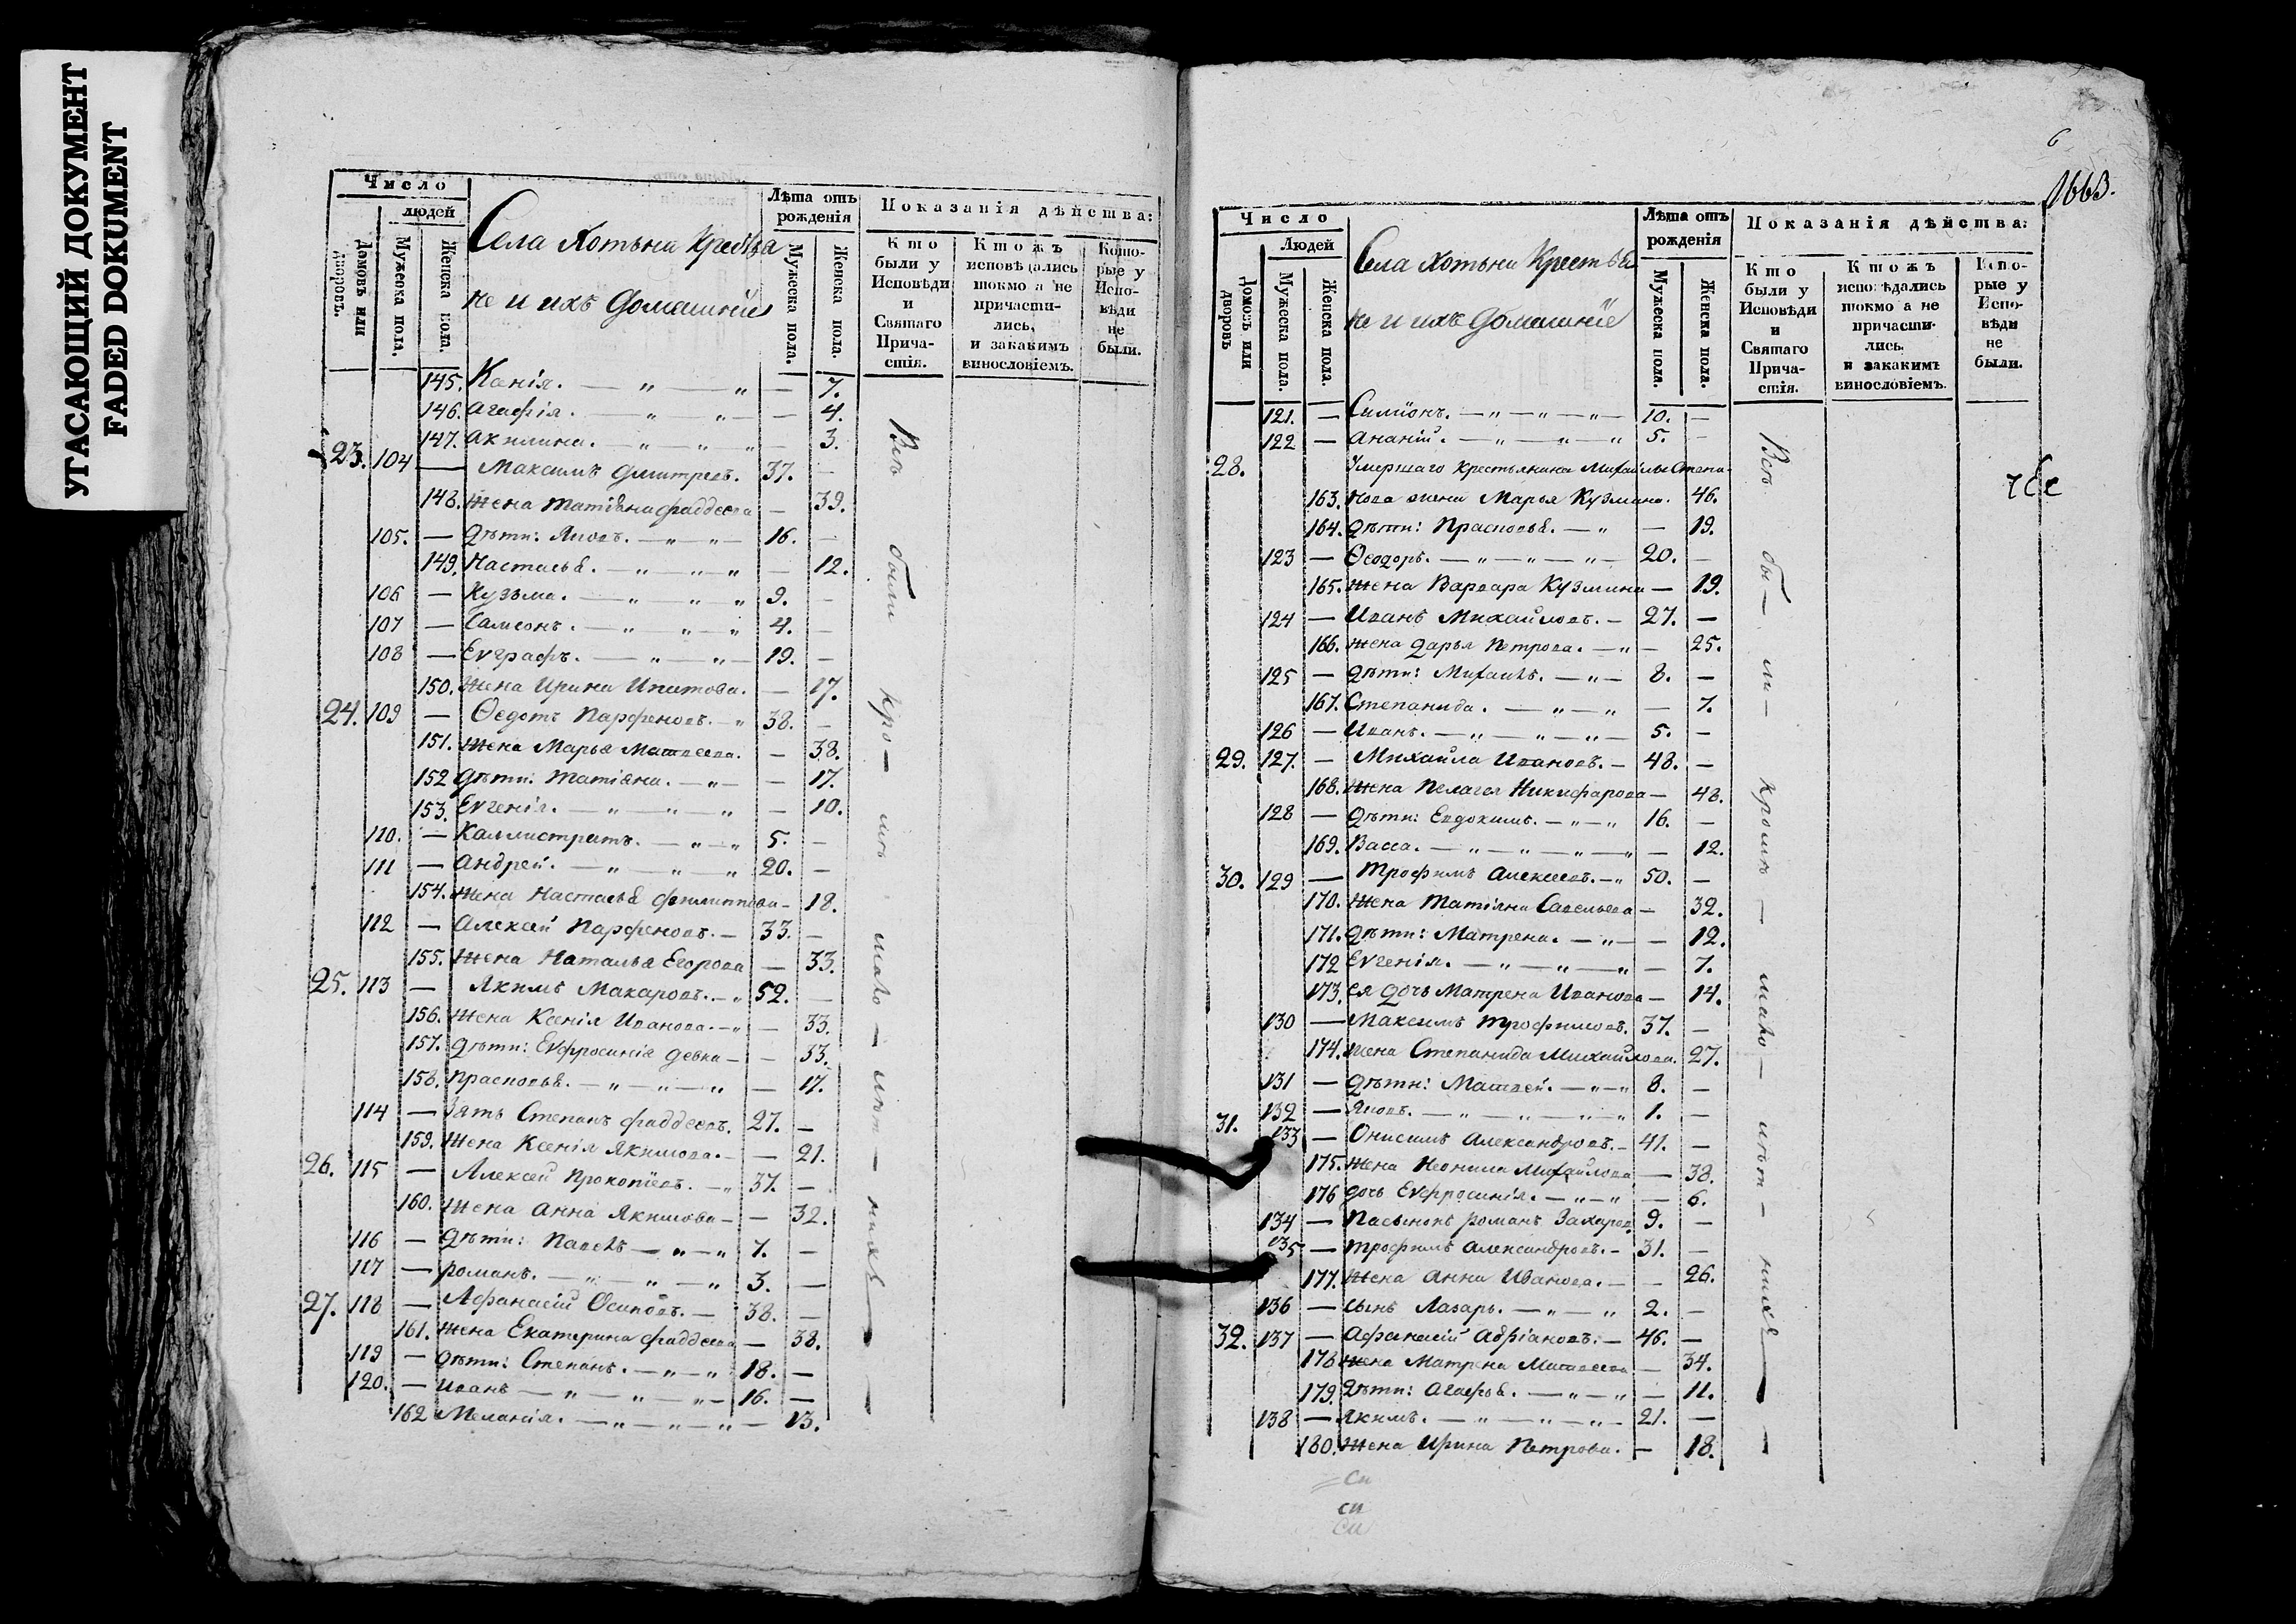 УГАСАЮЩИЙ ДОКУМЕНТ
FADED DOKUMENT
Число
людей
Домовъ или дворовъ.
Мужеска пола.
Женска пола.
Села Хотьна Крестья
не и ихъ домашнїе
Лѣта отъ рожденія
Мужеска пола.
Женска пола.
Показанія дѣйства:
Кто были у Исповѣди и Святаго Прича-стія.
Ктожъ исповѣдались токмо а не причасти-лись, и закакимъ винословіемъ.
Кото-рые у Испо-вѣди не были.
145. Ксенія. — „ — „ — 7.
146. Агафія. — „ „ — — 4.
147. Акилина. — „ „ „ — 3.
23. 104 — Максимъ Дмитреевъ. 37. —
148. Жена Татіяна Фаддеева — 39.
105. — Дѣти: Яковъ. — „ — „ — 16. —
149. Настасья. — „ „ — „ — 12.
106 — Кузьма. — „ „ — „ 9. —
107 — Самсонъ. — „ „ — „ 4. —
108 — Евграфъ. — „ — „ — 19. —
150. Жена Ирина Ипатова. — 17.
24. 109 — Ѳедотъ Парфеновъ. — „ 38. —
151. Жена Марья Матвеева. — 38.
152 Дѣти: Татіяна. — „ — — 17.
153. Евгенія. — „ — „ — „ — 10.
110. — Каллистратъ. — „ — „ 5. —
111 — Андрей. — „ — „ — „ 20. —
154. Жена Настасья Филиппова — 18.
112 — Алексей Парфеновъ. — 33. —
155. Жена Наталья Егорова — 33.
25. 113 — Якимъ Макаровъ. — „ 52. —
156. Жена Ксенія Иванова. — „ — 33.
157. Дѣти: Евфросинія девка — — 33.
158. Прасковья. — „ — „ — „ — 17.
114 — Зять Степанъ Фаддеевъ. 27. —
159. Жена Ксенія Якимова. — — 21.
26. 115 — Алексей Прокопїевъ. — „ 37. —
160. Жена Анна Якимова — — 32.
116 — Дѣти: Павелъ — „ — „ 7. —
117 — Романъ. — „ — „ — „ 3. —
27. 118 — Афанасій Осиповъ. — 38. —
161. Жена Екатерина Фаддеева — 38.
119 — Дѣти: Степанъ. — „ — „ 18. —
120. — Иванъ — „ — „ — „ — 16. —
162 Меланія. — „ — „ — „ — 13.
Всѣ были кро — мѣ мало — лѣт — нихъ —
6
1663.
Число
Людей
Домовъ или дворовъ
Мужеска пола.
Женска пола.
Села Хотьна Крестья
не и ихъ домашнїе
Лѣта отъ рожденія
Мужеска пола.
Женска пола.
Показанія дѣйства:
Кто были у Исповѣди и Святаго Прича-стія.
Ктожъ исповѣдались токмо а не причасти-лись. и закакимъ винословіемъ.
Кото-рые у Испо-вѣди не были.
121. — Симїонъ. — „ — „ — „ — 10. —
122 — Ананій. — „ — „ — „ 5. —
28. Умершаго крестьянина Михайлы Степа-
163. нова жена Марья Кузмина. 46.
164. Дѣти: Прасковья. — „ — 19.
123 — Ѳеодоръ. — „ — „ — „ — 20. —
165. Жена Варвара Кузмина — 19.
124 — Иванъ Михайловъ. — 27. —
166. Жена Дарья Петрова. — „ — 25.
125 — Дѣти: Михаилъ. — „ — 8. —
167. Степанида. — „ — „ — 7.
126 — Иванъ. — „ — „ — „ — 5. —
29. 127. — Михайла Ивановъ. — 48. —
168. Жена Пелагея Никифарова — 48.
128 — Дѣти: Евдокимъ. — „ — „ 16. —
169. Васса. — „ — „ — „ — „ — 12.
30. 129 — Трофимъ Алексеевъ. — „ 50. —
170. Жена Татіяна Савельева — 32.
171. Дѣти: Матрена. — „ — — 12.
172 Евгенія. — „ — „ — „ — 7.
173. Ея дочь Матрена Иванова — 14.
130 — Максимъ Трофимовъ. 37. —
174. Жена Степанида Михайлова. 27.
131 — Дѣти: Матвей. — „ — „ 8. —
132 — Яковъ. — „ — „ — „ — „ 1. —
31. 133 — Онисимъ Александровъ. — 41. —
175. Жена Неонила Михайлова — 38.
176 Дочь Евфросинія. — „ — „ — 6.
134 — Пасынокъ Романъ Захаров. 9. —
135 — Трофимъ Александровъ. — 31. —
177. Жена Анна Иванова. — — 26.
136 — Сынъ Лазарь. — „ — „ 2. —
32. 137 — Афанасій Адріановъ. — 46. —
178 Жена Матрена Матвеева — 34.
179. Дѣти: Агафья. — „ — „ — 11.
138 — Якимъ. — „ — „ — „ — 21. —
180. Жена Ирина Петрова. — 18.
Всѣ бы — ли — кромѣ — мало — лѣт — нихъ —
си
си
си